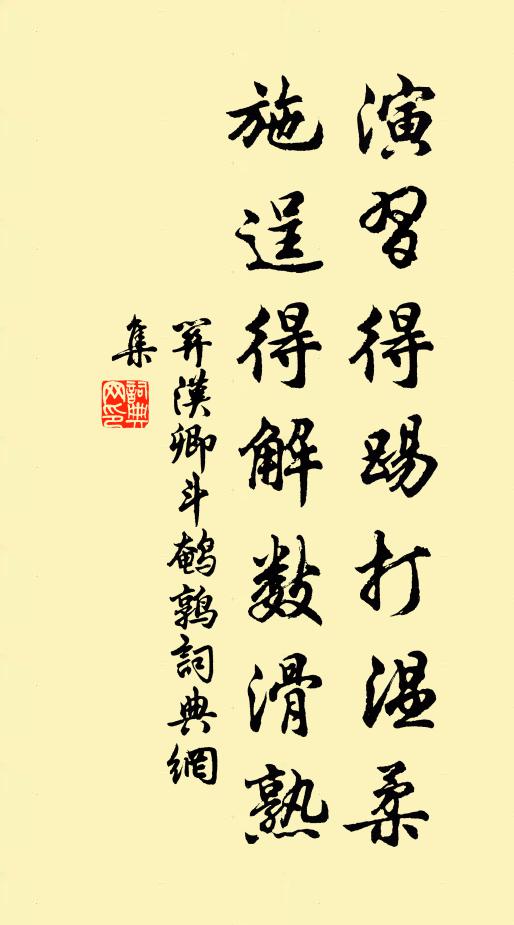 演習得踢打温柔
施逞得解數滑熟
關漢卿斗鵪鶉詞典網
集
詞典
网印